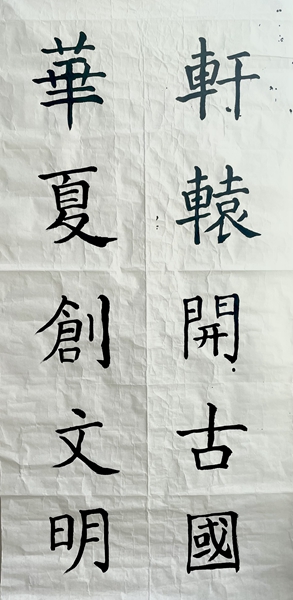 軒轅開古國
華夏創文明